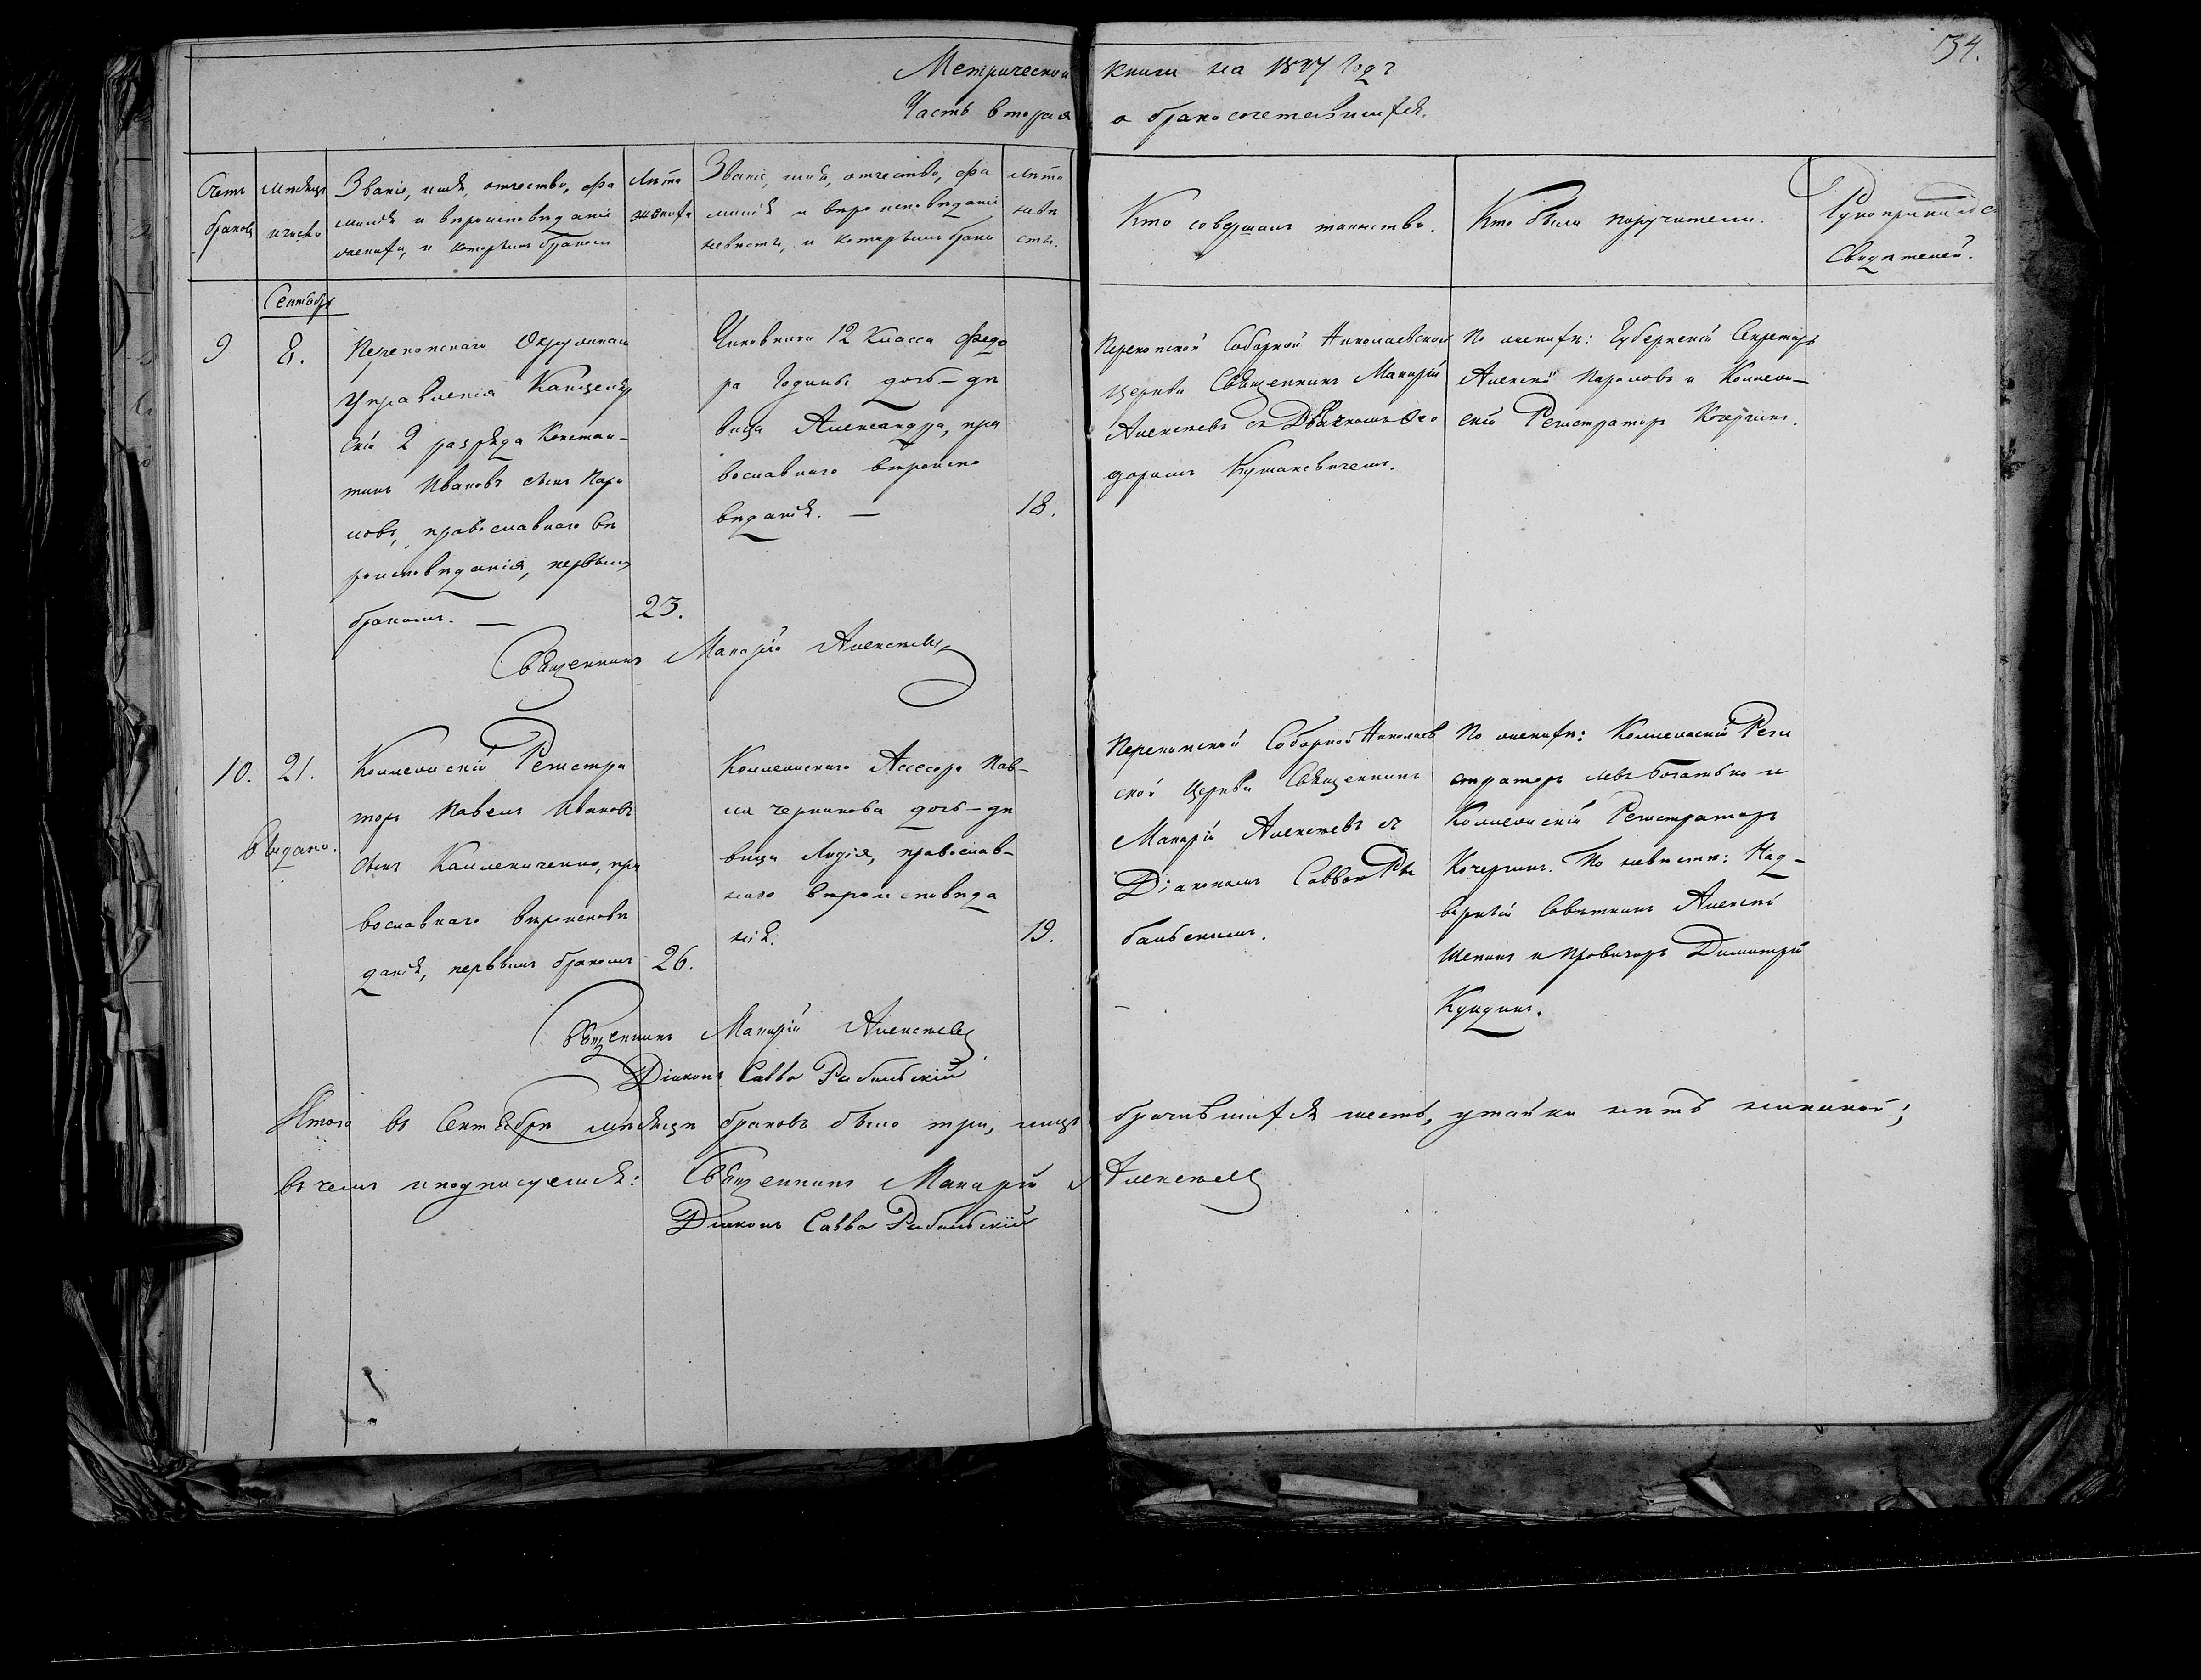 Метрической книги на 18 годъ
34.
Часть вторая о бракосочетавшихся.
Счетъ браковъ
Месяцъ и число
Званіе, имя, отчество, фа
милія и вѣроисповѣданіе
жениха, и которымъ бракомъ
Лѣта жениха
Званіе, имя, отчество, фа
милія и вѣроисповѣданіе
невѣсты, и которымъ брако
Лѣта невѣ
сты.
Кто совершалъ таинство.
Кто были поручители.
Рукоприкладс
Свидѣтелей.
Сентябрь
9
8.
Перекопскаго Окружнаго
Управленія Канцеляр
скій 2 разряда Констан-
тинъ Ивановъ сынъ
православнаго вѣ
роисповѣданія, первымъ
бракомъ. —
23.
Чиновника 12 Класса Федо
ра Година дочь - дѣ
вица Александра, пра
вославнаго вѣроиспо
вѣданія. —
18.
Перекопской Соборной Николаевской
Церкви Священникъ Макарій
Алексѣевъ съ Дьякономъ Ѳео
доромъ
По женихѣ: Губернскій Секретарь
Алексѣй и Коллеж-
скій Регистраторъ Кочергинъ.
Священникъ Макарій Алексѣевъ
10.
21.
Выдано.
Коллежскій Регистра
торъ Павелъ Ивановъ
сынъ пра
вославнаго вѣроисповѣ
данія, первымъ бракомъ
26.
Коллежскаго Асесора Пав-
ла Черникова дочь - дѣ
вица Лидія, православ-
наго вѣроисповѣда
нія.
19.
Перекопской Соборной Николаев
ской Церкви Священникъ
Макарій Алексѣевъ съ
Діакономъ Саввою Ры
бальскимъ.
По женихѣ: Коллежскій Реги
страторъ Левъ Богатько и
Коллежскій Регистраторъ
Кочергинъ. По невѣстѣ: Над-
ворный Совѣтникъ Алексѣй
и Провизоръ Димитрій
Священникъ Макарій Алексѣевъ
Діаконъ Савва Рибальскій
Итого въ Сентябрѣ мѣсяцѣ браковъ было три, лицъ брачившихся шесть, утайки нѣтъ никакой;
въ чемъ и подписуемся: Священникъ Макарій Алексѣевъ
Діаконъ Савва Рибальскій